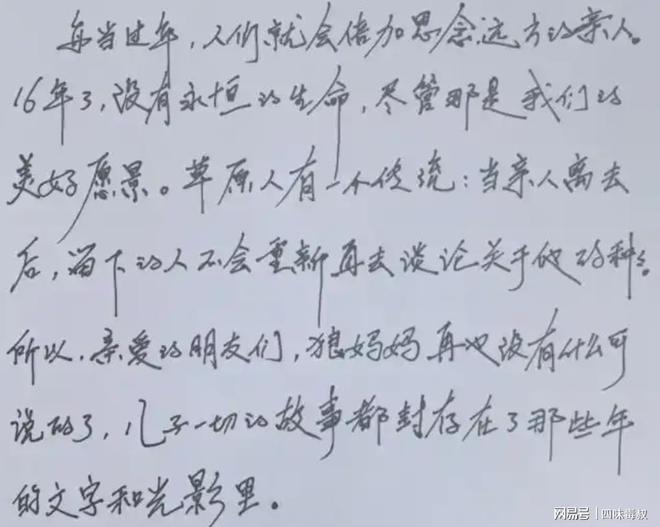 每当过年，人们就会倍加思念远方的亲人。
16年了，没有永恒的生命，尽管那是我们的
美好愿景。草原人有一个传统：当亲人离去
后，留下的人不会重新再去谈论关于他的种种。
所以，亲爱的朋友们，狼妈妈再也没有什么可
说的了，儿子一切的故事都封存在了那些年
的文字和光影里。
网易号 | 四味毒叔